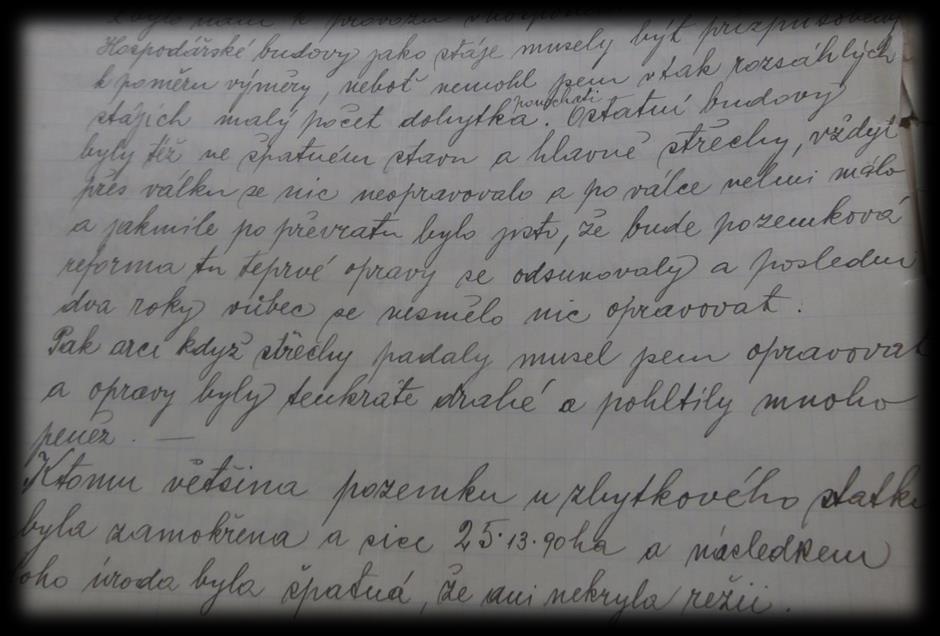 nám k provozu
Hospodářské budovy jako stáje musely být přizpůsobeny
k poměru výměry, neboť nemohl jsem v tak rozsáhlých
ponechati
stájích malý počet dobytka. Ostatní budovy
byly též ve špatném stavu a hlavně střechy, vždyť
přes válku se nic neopravovalo a po válce velmi málo
a jakmile po převratu bylo jisto, že bude pozemková
reforma tu teprvé opravy se odsunovaly a posledni
dva roky vůbec se nesmělo nic opravovat.
Pak arci když střechy padaly musel jsem opravovat
a opravy byly tenkráte drahé a pohltily mnoho
peněz. —
K tomu většina pozemku u zbytkového statku
byla zamokřena a sice 25.13.90 ha a následkem
toho úroda byla špatná, že ani nekryla režii.